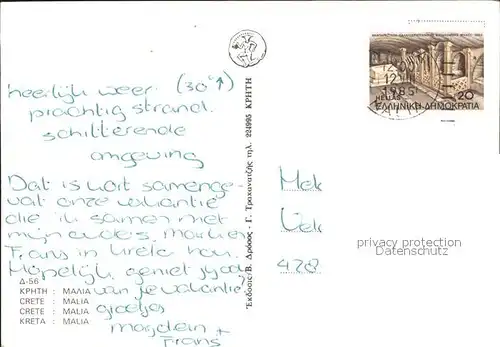 heerlijk weer. (30°↑)
prachtig strand.
schitterende
omgeving
Dat is kort samenge-
vat onze vakantie
die ik samen met
mijn ouders,
Frans in Kreta hou.
Hopelijk geniet
van je vakantie
groetjes
Magdelein +
Frans
Δ-56
ΚΡΗΤΗ : ΜΑΛΙΑ
CRETE : MALIA
CRETE : MALIA
KRETA : MALIA
Έκδοσις: Β. Δρόσος - Γ. Τραχανατζής τηλ. 224995 ΚΡΗΤΗ
12
1985
HELLAS
20
ΕΛΛΗΝΙΚΗ ΔΗΜΟΚΡΑΤΙΑ
Mek
Uek
428
privacy protection
www.ansichtskarten-center.de